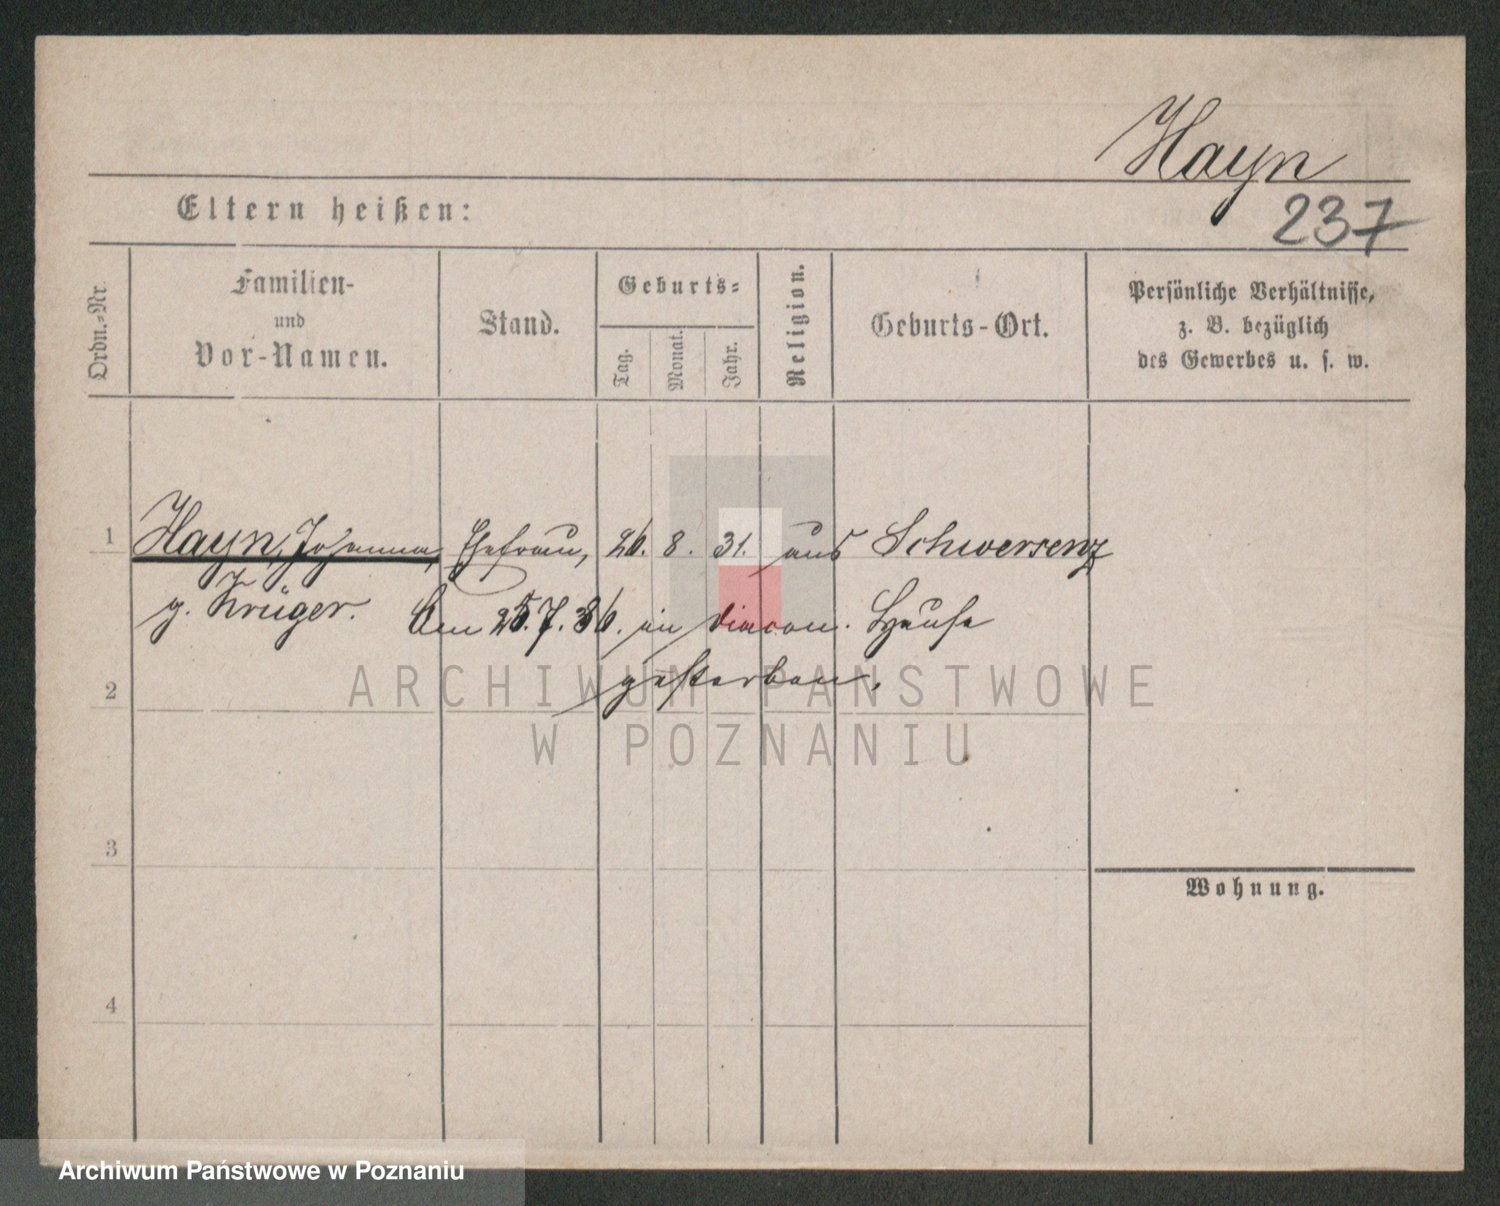 Hayn
Eltern heißen:
237
Ordn.-Nr.
Familien-
und
Vor-Namen.
Stand.
Geburts-
Tag.
Monat.
Jahr.
Religion.
Geburts-Ort.
Persönliche Verhältnisse,
z. B. bezüglich
des Gewerbes u. s. w.
1 Hayn, Johanna, Ehefrau, 26. 8. 31. aus Schwersenz
g. Krüger. Am 25.7.86. im Diacon. Hause
2 gestorben.
ARCHIWUM PAŃSTWOWE
W POZNANIU
3
Wohnung.
4
Archiwum Państwowe w Poznaniu